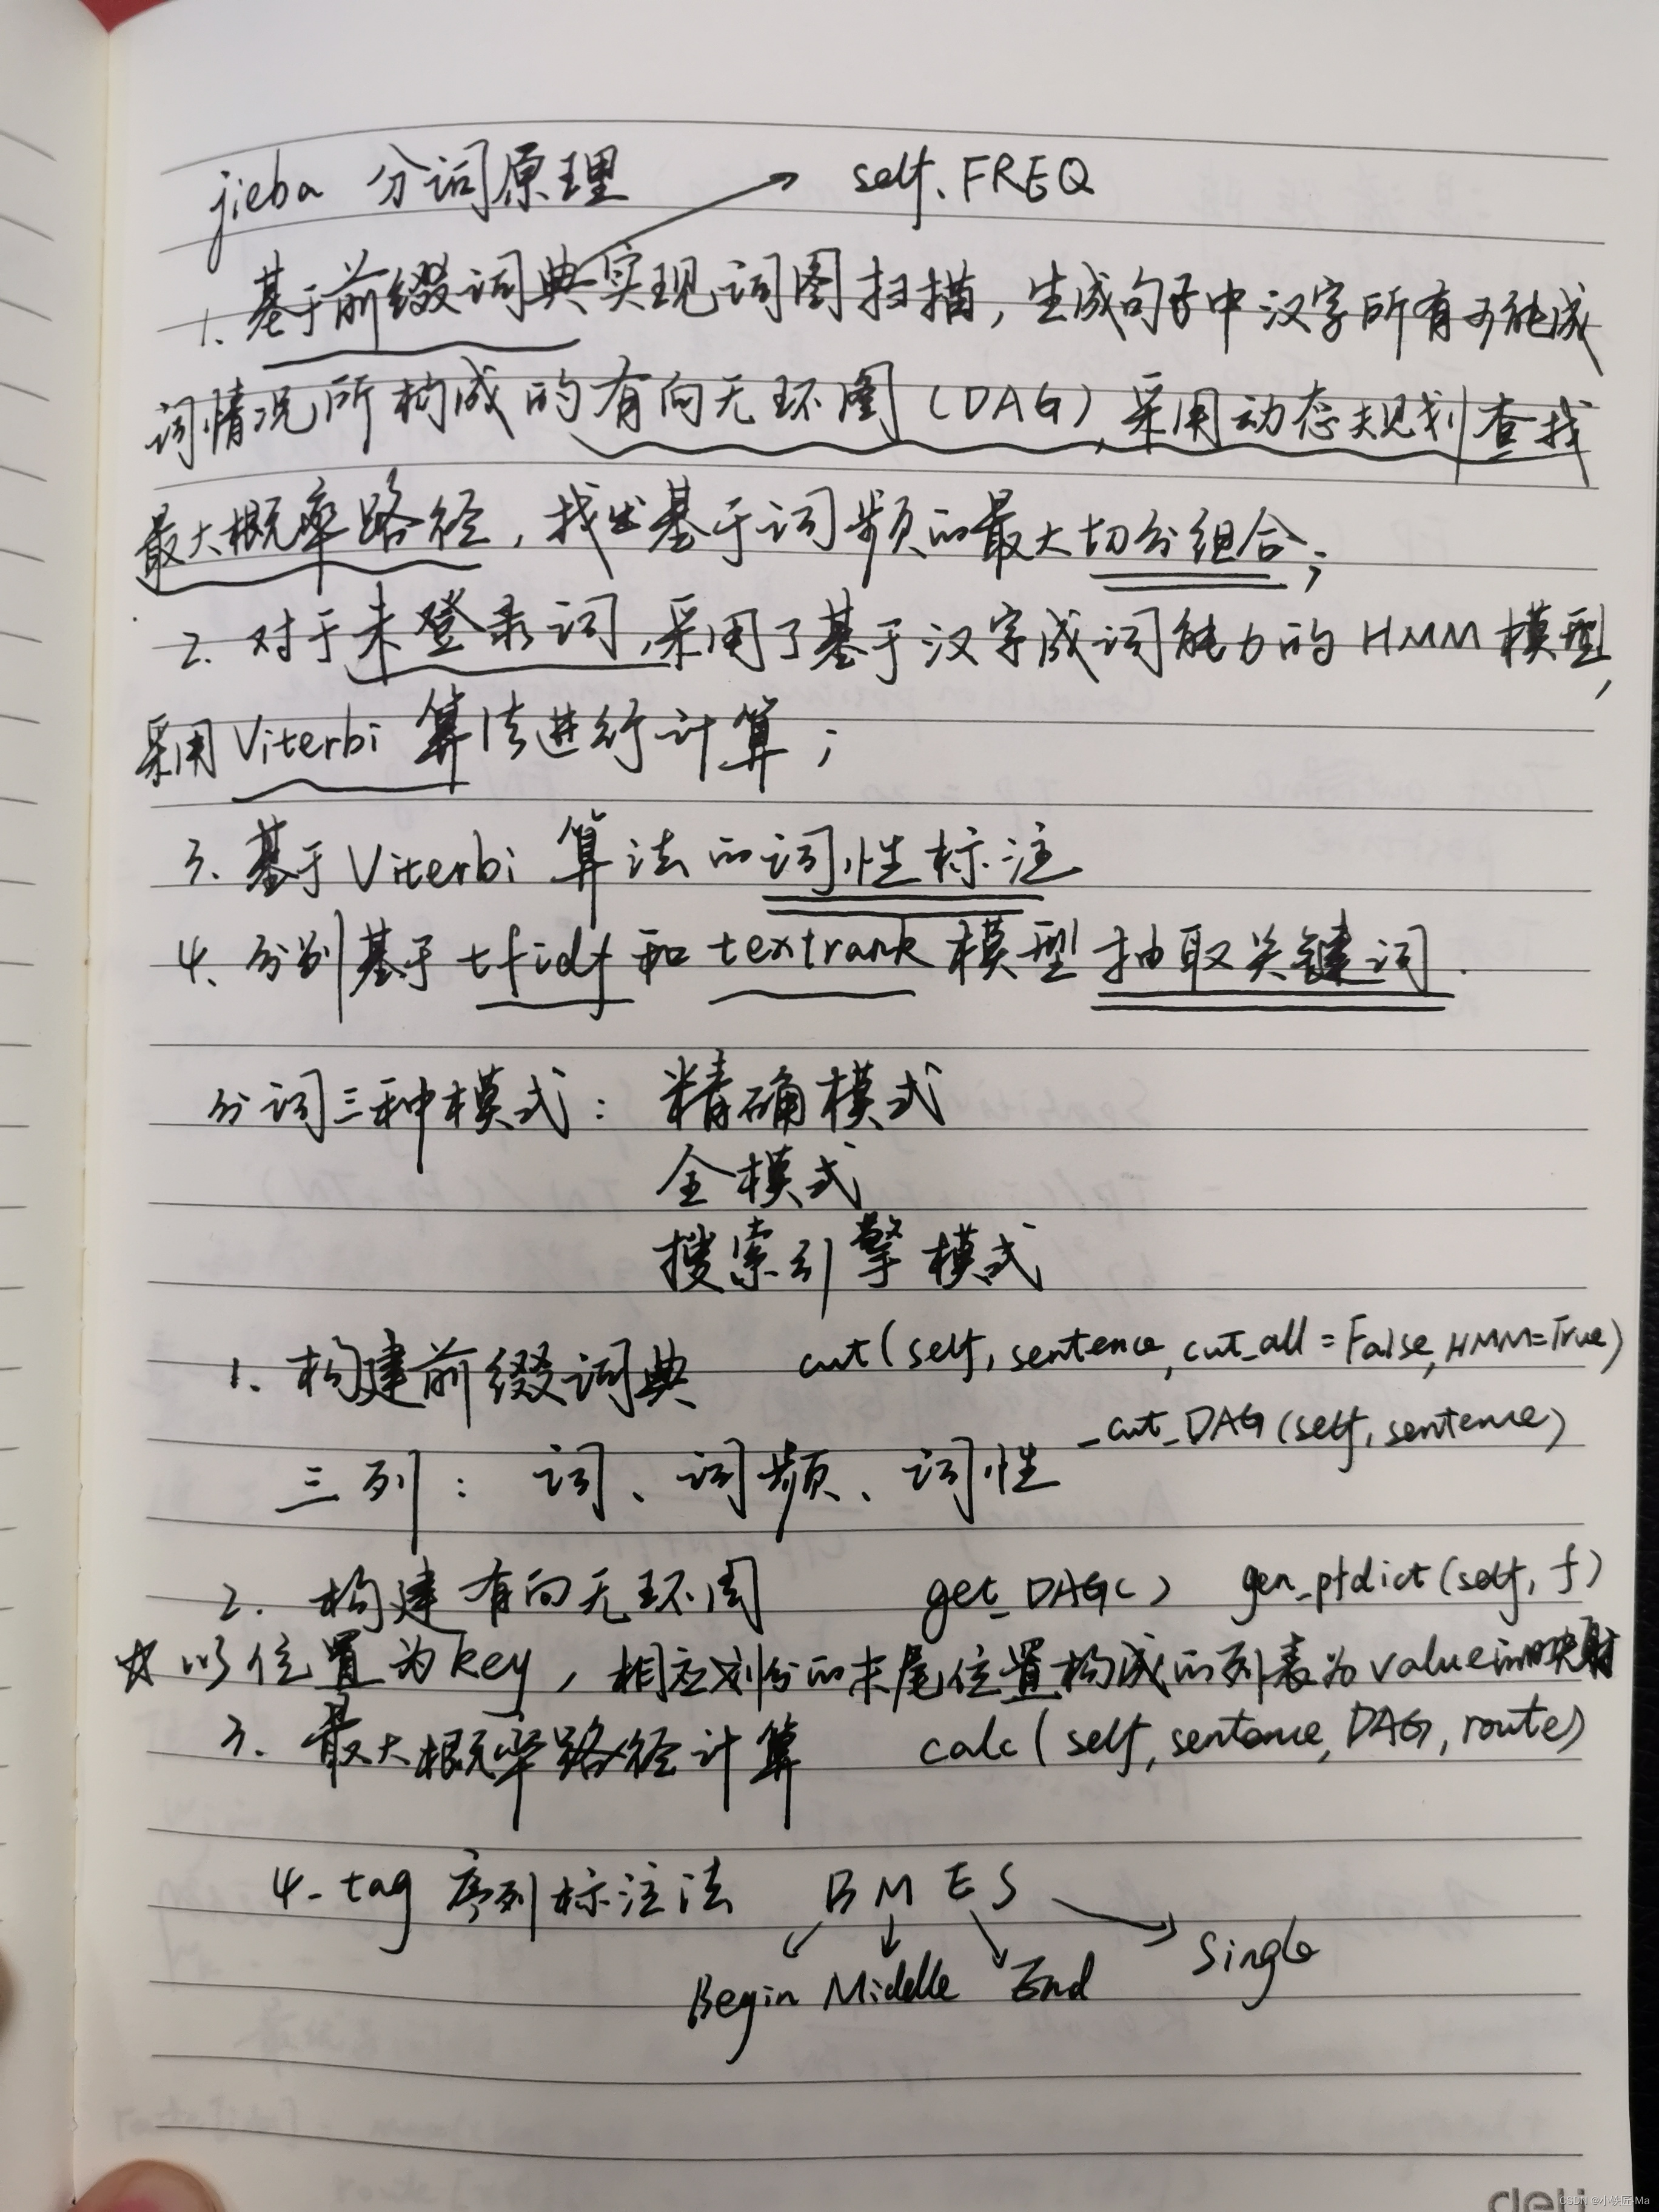 jieba 分词原理 self.FREQ
1. 基于前缀词典实现词图扫描，生成句子中汉字所有可能成
词情况所构成的有向无环图（DAG），采用动态规划查找
最大概率路径，找出基于词频的最大切分组合；
2. 对于未登录词，采用了基于汉字成词能力的 HMM 模型，
采用 Viterbi 算法进行计算；
3. 基于 Viterbi 算法的词性标注
4. 分别基于 tfidf 和 textrank 模型抽取关键词.
分词三种模式： 精确模式
全模式
搜索引擎模式
1. 构建前缀词典 cut(self, sentence, cut_all=False, HMM=True)
三列： 词、词频、词性 _cut_DAG(self, sentence)
2. 构建有向无环图 get_DAG() gen_pfdict(self, f)
☆ 以位置为key，相应划分的末尾位置构成的列表为value的映射
3. 最大概率路径计算 calc(self, sentence, DAG, route)
4-tag 序列标注法 B M E S
Begin Middle End Single
deli
CSDN @小妖匠-Ma